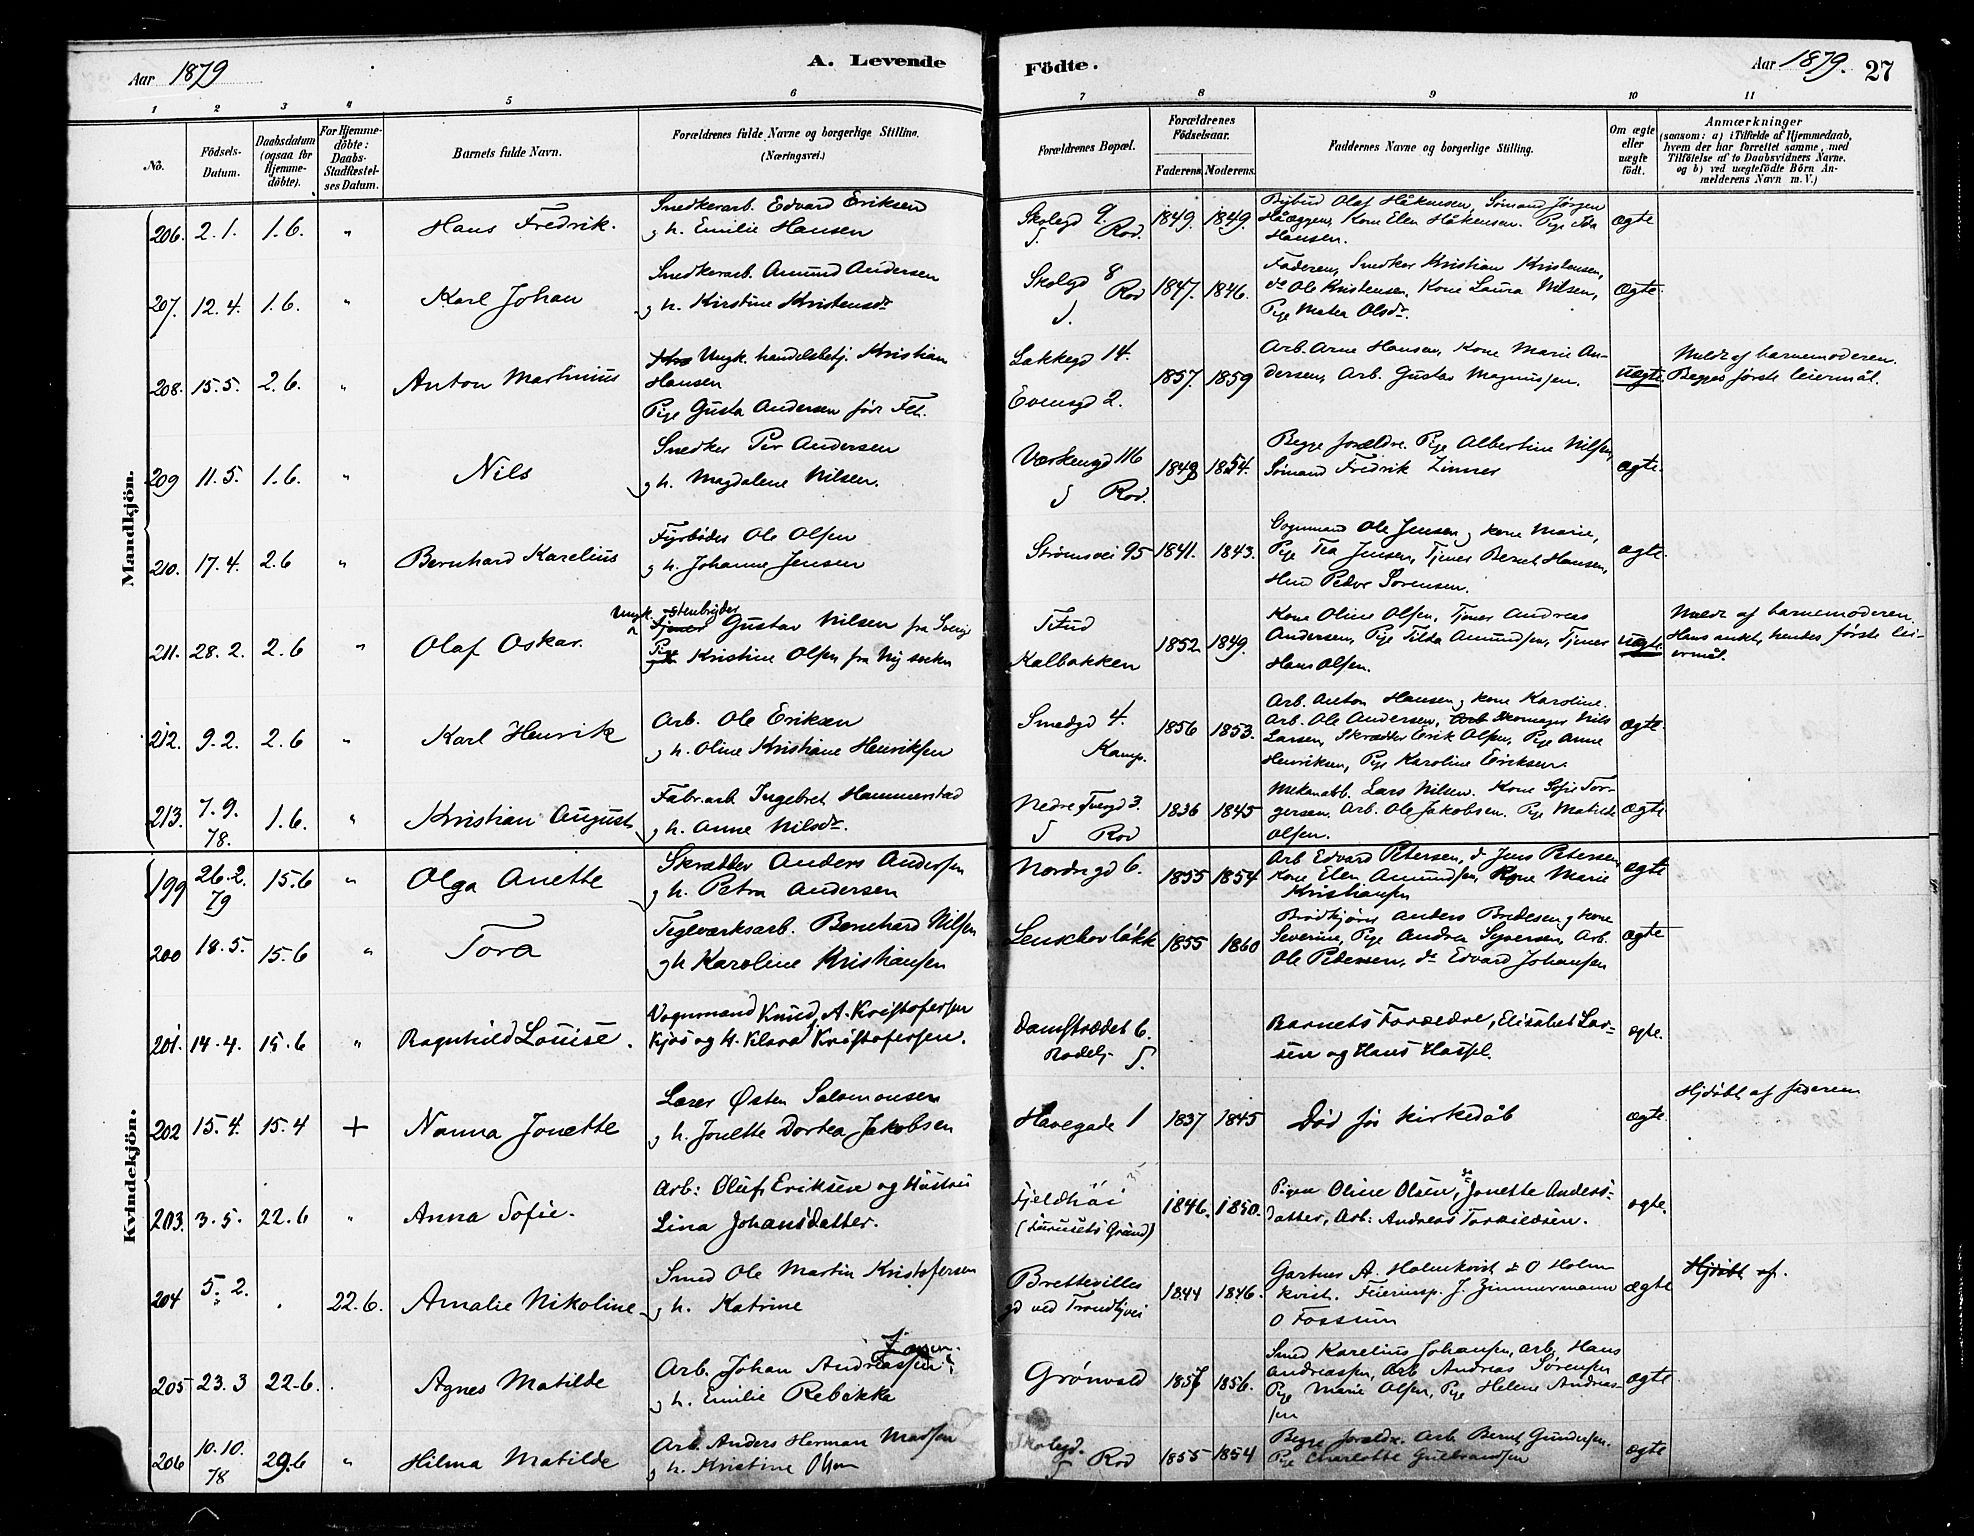 Aar 1879
A. Levende
Födte.
Aar 1879.
27
1 2 3 4 5 6 7 8 9 10 11
No.
Födsels-
Datum.
Daabsdatum
(ogsaa for
Hjemme-
döbte).
For Hjemme-
döbte:
Daabs-
Stadfæstel-
ses Datum.
Barnets fulde Navn.
Forældrenes fulde Navne og borgerlige Stilling.
(Næringsvei.)
Forældrenes Bopæl.
Forældrenes
Födselsaar.
Faderens. Moderens.
Faddernes Navne og borgerlige Stilling.
Om ægte
eller
uægte
födt.
Anmærkninger
(saasom: a) i Tilfælde af Hjemmedaab,
hvem der har forrettet samme, med
Tilföielse af to Daabsvidners Navne,
og b) ved uægtefödte Börn An-
melderens Navn m. V.)
Mandkjön.
206. 2.1. 1.6. " Hans Fredrik.
Snedkerarb. Edvard Eriksen
g h. Emilie Hansen
Skolegd 9
Rod.
1849. 1849.
Bybud Olaf Håkensen, Sömand Jörgen
Kone Elen Håkensen. Pige Ida
Hansen.
ægte
207. 12.4. 1.6. " Karl Johan
Snedkerarb. Amund Andersen
g h. Kirstine Kristensdr
Skolegd 8
Rod
1847. 1846.
Faderen, Snedker Kristian Kristensen,
do Ole Kristensen, Kone Laura Nilsen,
Pige Matea Olsdr.
ægte.
208. 15.5. 2.6. " Anton Martinius
Ungk. handelsbetj. Kristian
Hansen
Pige Gusta Andersen
Lakkegd 14.
Evensgd 2.
1857. 1859
Arb. Arne Hansen, Kone Marie An-
dersen, Arb. Gustav Magnussen.
uægte.
Meldt af barnemoderen.
Begges förste leiermål.
209 11.5. 1.6. " Nils
Snedker Per Andersen
g h. Magdalene Nilsen.
Værkengd 116
Rod.
1848 1854.
Begge forældre. Pige Albertine Nilsen,
Sömand Fredrik Zinner
ægte.
210. 17.4. 2.6 " Bernhard Karelius
Fyrböder Ole Olsen
g h. Johanne Jensen
Strömsvei 95
1841. 1843.
Vognmand Ole Jensen g kone Marie,
Pige Tea Jensen, Tjener Bernt Hansen,
Peder Sörensen.
ægte.
211. 28.2. 2.6 " Olaf Oskar.
Ungk. stenbryder
Tjener Gustav Nilsen fra Sverige
Pige Kristine Olsen fra Ny socken
Kalbakken
1852 1849.
Kone Oline Olsen, Tjener Andreas
Andersen, Pige Tilda Amundsen, Tjener
Hans Olsen.
uægte.
Meldt af barnemoderen.
Hans andet, hendes förste lei-
ermål.
212. 9.2. 2.6 " Karl Henrik
Arb. Ole Eriksen
g h. Oline Kristiane Henriksen
Smedgd 4.
Kamp.
1856 1853.
Arb. Anton Hansen g kone Karoline.
Arb. Ole Andersen, Arb Skomager Nils
Larsen, Skrædder Erik Olsen, Pige Anne
Henriksen, Pige Karoline Eriksen.
ægte.
213. 7.9. 1.6. " Kristian August
78.
Fabr.arb Ingebret Hammerstad
g h. Anne Nilsdr.
Nedre Tvergd 3.
Rod
1836 1845
Mekan.arb. Lars Nilsen. Kone Sofie Tor-
gersen. Arb. Ole Jakobsen. Pige Matilde
Olsen.
ægte
Kvindekjön.
199 26.2. 15.6 " Olga Anette
79
Skrædder Anders Andersen
g h. Petra Andersen
Nordregd 6.
1855 1854
Arb Edvard Petersen, do Jens Petersen,
Kone Elen Amundsen, Kone Marie
Kristiansen
ægte
200 18.5. 15.6 " Tora
Teglværksarb. Bernhard Nilsen
g h Karoline Kristiansen
Lenschovlökk
1855 1860
Brödkjörer Anders Bredesen g kone
Severine, Pige Andrea Syversen, Arb.
Ole Pedersen, do Edvard Johansen
ægte
201. 14.4. 15.6 " Ragnhild Louise.
Vognmand Knud A. Kristofersen
Kjös og h. Klara Kristofersen.
Damstrædet 6.
1855 
Barnets Forældre, Elisabet Lar-
sen og Hans Hassel.
ægte.
202 15.4. 15.4 + Nanna Jonette
Lærer Østen Salamonsen
g h. Jonette Dortea Jakobsen
Havegade 1
1837 1845
Död för kirkedåb
ægte.
Hjdöbt af faderen
203. 3.5. 22.6 " Anna Sofie.
Arb: Oluf Eriksen og Hustru
Lina Johansdatter.
Fjeldhöi
(Furusets Grund)
1846. 1850.
Pigen Oline Olsen, do Jonette Anders-
datter, Arb: Andreas Torkildsen.
ægte.
204 5.2. . 22.6. Amalie Nikoline
Smed Ole Martin Kristofersen
g h. Katrine
Brettevilles
gd ved Trondhjvei
1844 1846.
Gartner A. Holmkvist & O Holm
kvist. Feierinsp. J. Zimmermann
O Fossum
ægte
Hjdöbt af.
205 23.3 22.6. . Agnes Matilde
Arb. Johan Andreassen
g h. Emilie Rebekka
Grönvold
1857 1856.
Smed Karelius Johansen, arb. Hans
Andreassen, Arb Andreas Sörensen
Pige Marie Olsen, Pige Helene Andreas-
sen
ægte
206 10.10. 29.6 " Hilma Matilde
78
Arb. Anders Herman Madsen
g h. Kristine Olsen
Skolegd.
Rod
1855 1854
Begge forældre. Arb. Bernt Gundersen.
Pige Charlotte Gulbrandsen
ægte